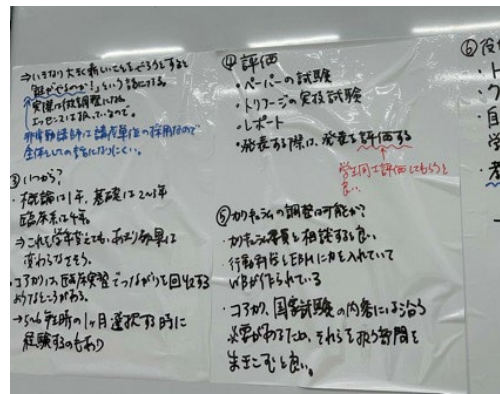 ⇒いきなり大きく新しいことをやろうとすると
「誰がやるのか!」という話になる。
実際は微調整になる
エッセンスは入っているので。
非常勤講師は講座単位の採用なので
全体としての話になりにくい。
③いつから?
・概論は1年、基礎は2〜3年
臨床系は4年。
⇒これを学年変えても、あまり効果は
変わらなそう。
・コアカリは臨床実習でつながりを回収する
ようなところがある。
→5〜6年時の1ヶ月選択する時に
経験するのもあり
④評価
・ペーパーの試験
・トリアージの実技試験
・レポート
・発表する際は、発表を評価する
学生同士評価してもらうと
良い。
⑤カリキュラムの調整は可能か?
・カリキュラム委員と相談すると良い
・行動科学とEBMに力を入れていて
WGが作られている
・コアカリ、国家試験の内容には沿う
必要があるため、それらを扱う設問を
生玉こむと良い。
⑥